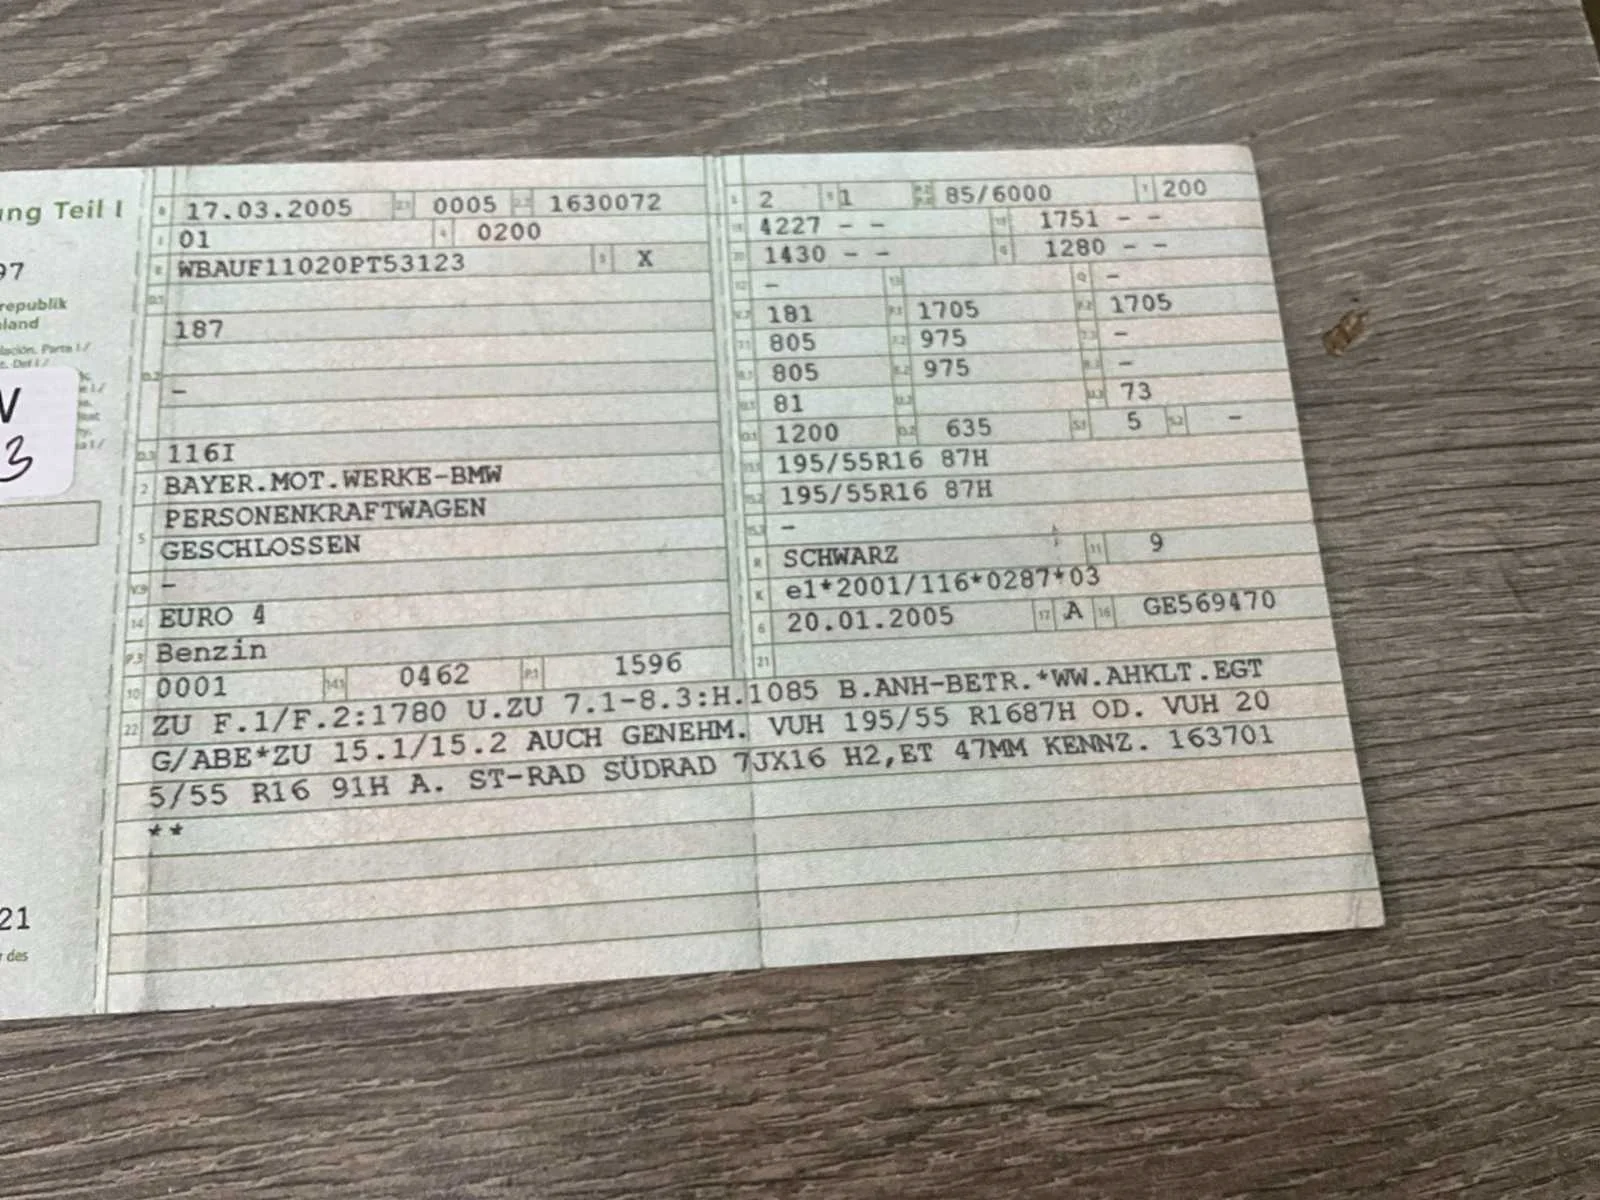 ung Teil I
97
republik
land
lación. Parte I /
V
3
21
r des
B 17.03.2005 2.1 0005 2.2 1630072
J 01 4 0200
E WBAUF11020PT53123 3 X
D.1
187
D.2
-
D.3 116I
2 BAYER.MOT.WERKE-BMW
5 PERSONENKRAFTWAGEN
GESCHLOSSEN
V.9 -
14 EURO 4
P.3 Benzin
10 0001 14.1 0462 P.1 1596
L 2 9 1 P.2 P.4 85/6000 T 200
18 4227 - - 19 1751 - -
20 1430 - - G 1280 - -
12 - 13 Q -
V.7 181 F.1 1705 F.2 1705
7.1 805 7.2 975 7.3 -
8.1 805 8.2 975 8.3 -
U.1 81 U.2 U.3 73
O.1 1200 O.2 635 S.1 5 S.2 -
15.1 195/55R16 87H
15.2 195/55R16 87H
15.3 -
R SCHWARZ 11 9
K e1*2001/116*0287*03
6 20.01.2005 17 A 16 GE569470
21
22 ZU F.1/F.2:1780 U.ZU 7.1-8.3:H.1085 B.ANH-BETR.*WW.AHKLT.EGT
G/ABE*ZU 15.1/15.2 AUCH GENEHM. VUH 195/55 R1687H OD. VUH 20
5/55 R16 91H A. ST-RAD SÜDRAD 7JX16 H2,ET 47MM KENNZ. 163701
**